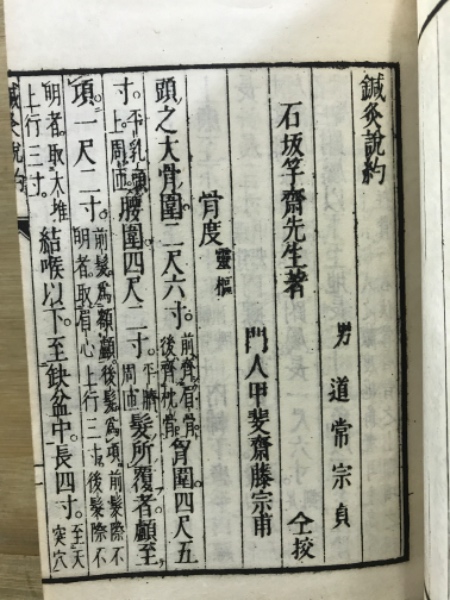 鍼灸說約
石坂竽齋先生著
男 道常宗貞
門人甲斐齋藤宗甫 仝挍
骨度 靈樞
頭之大骨圍二尺六寸。前齊眉骨。後齊枕骨。胷圍四尺五
寸。平乳頭上周匝。腰圍四尺二寸。平臍周匝。髮所覆者顱至
項。一尺二寸。前髮爲顱。後髮爲項。前髮際不明者。取眉心上行三寸。後髮際不
明者。取大椎上行三寸。結喉以下。至缺盆中。長四寸。至天突穴
鍼灸說約